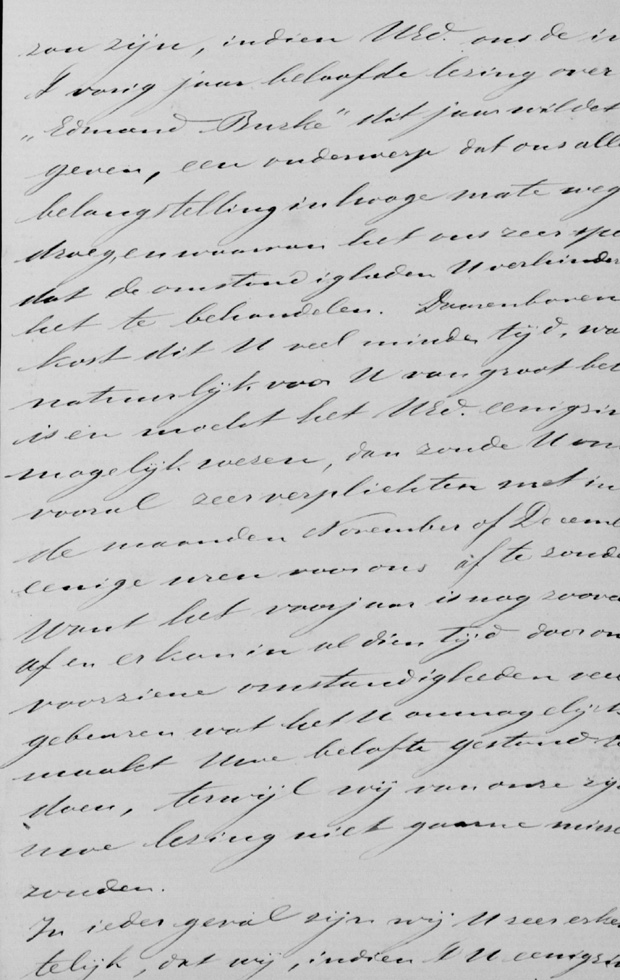 zou zijn, indien UEd. ons de in
't vorig jaar beloofde lezing over
„Edmund Burke" dit jaar wildet
geven, een onderwerp dat ons alle
belangstelling in hooge mate weg
droeg, en waarvan het ons zeer spe
dat de omstandigheden U verhinder
het te behandelen. Daarenboven
kost dit U veel minder tijd, wa
natuurlijk voor U van groot bel
is en mocht het UEd. eenigzin
mogelijk wezen, dan zoude U on
vooral zeer verplichten met in
de maanden November of Decemb
eenige uren voor ons af te zonde
Want het voorjaar is nog zoover
af en er kan in al dien tijd door on
voorziene omstandigheden veel
gebeuren wat het U onmogelijk
maakt Uwe belofte gestand te
doen, terwijl wij van onze zij
uwe lezing niet gaarne misse
zouden.
In ieder geval zijn wij U zeer erken
telijk, dat wij, indien 't U eenigzin